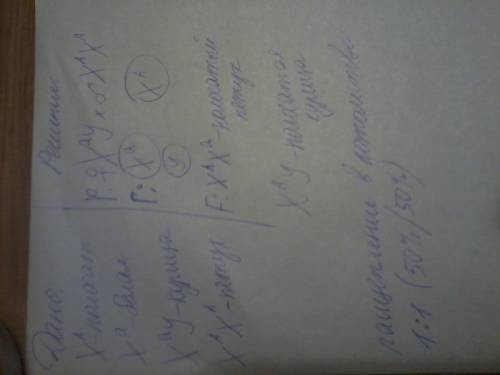 Дано:
X^A-полосат.
X^a-белая
X^aY-курица
X^AX^A-петух
Решение:
P: ♀X^aY × ♂X^AX^A
Г: X^a X^A
Y
F: X^AX^a-полосатый
петух
X^AY-полосатая
курица
расщепление в потомстве
1:1 (50%/50%)